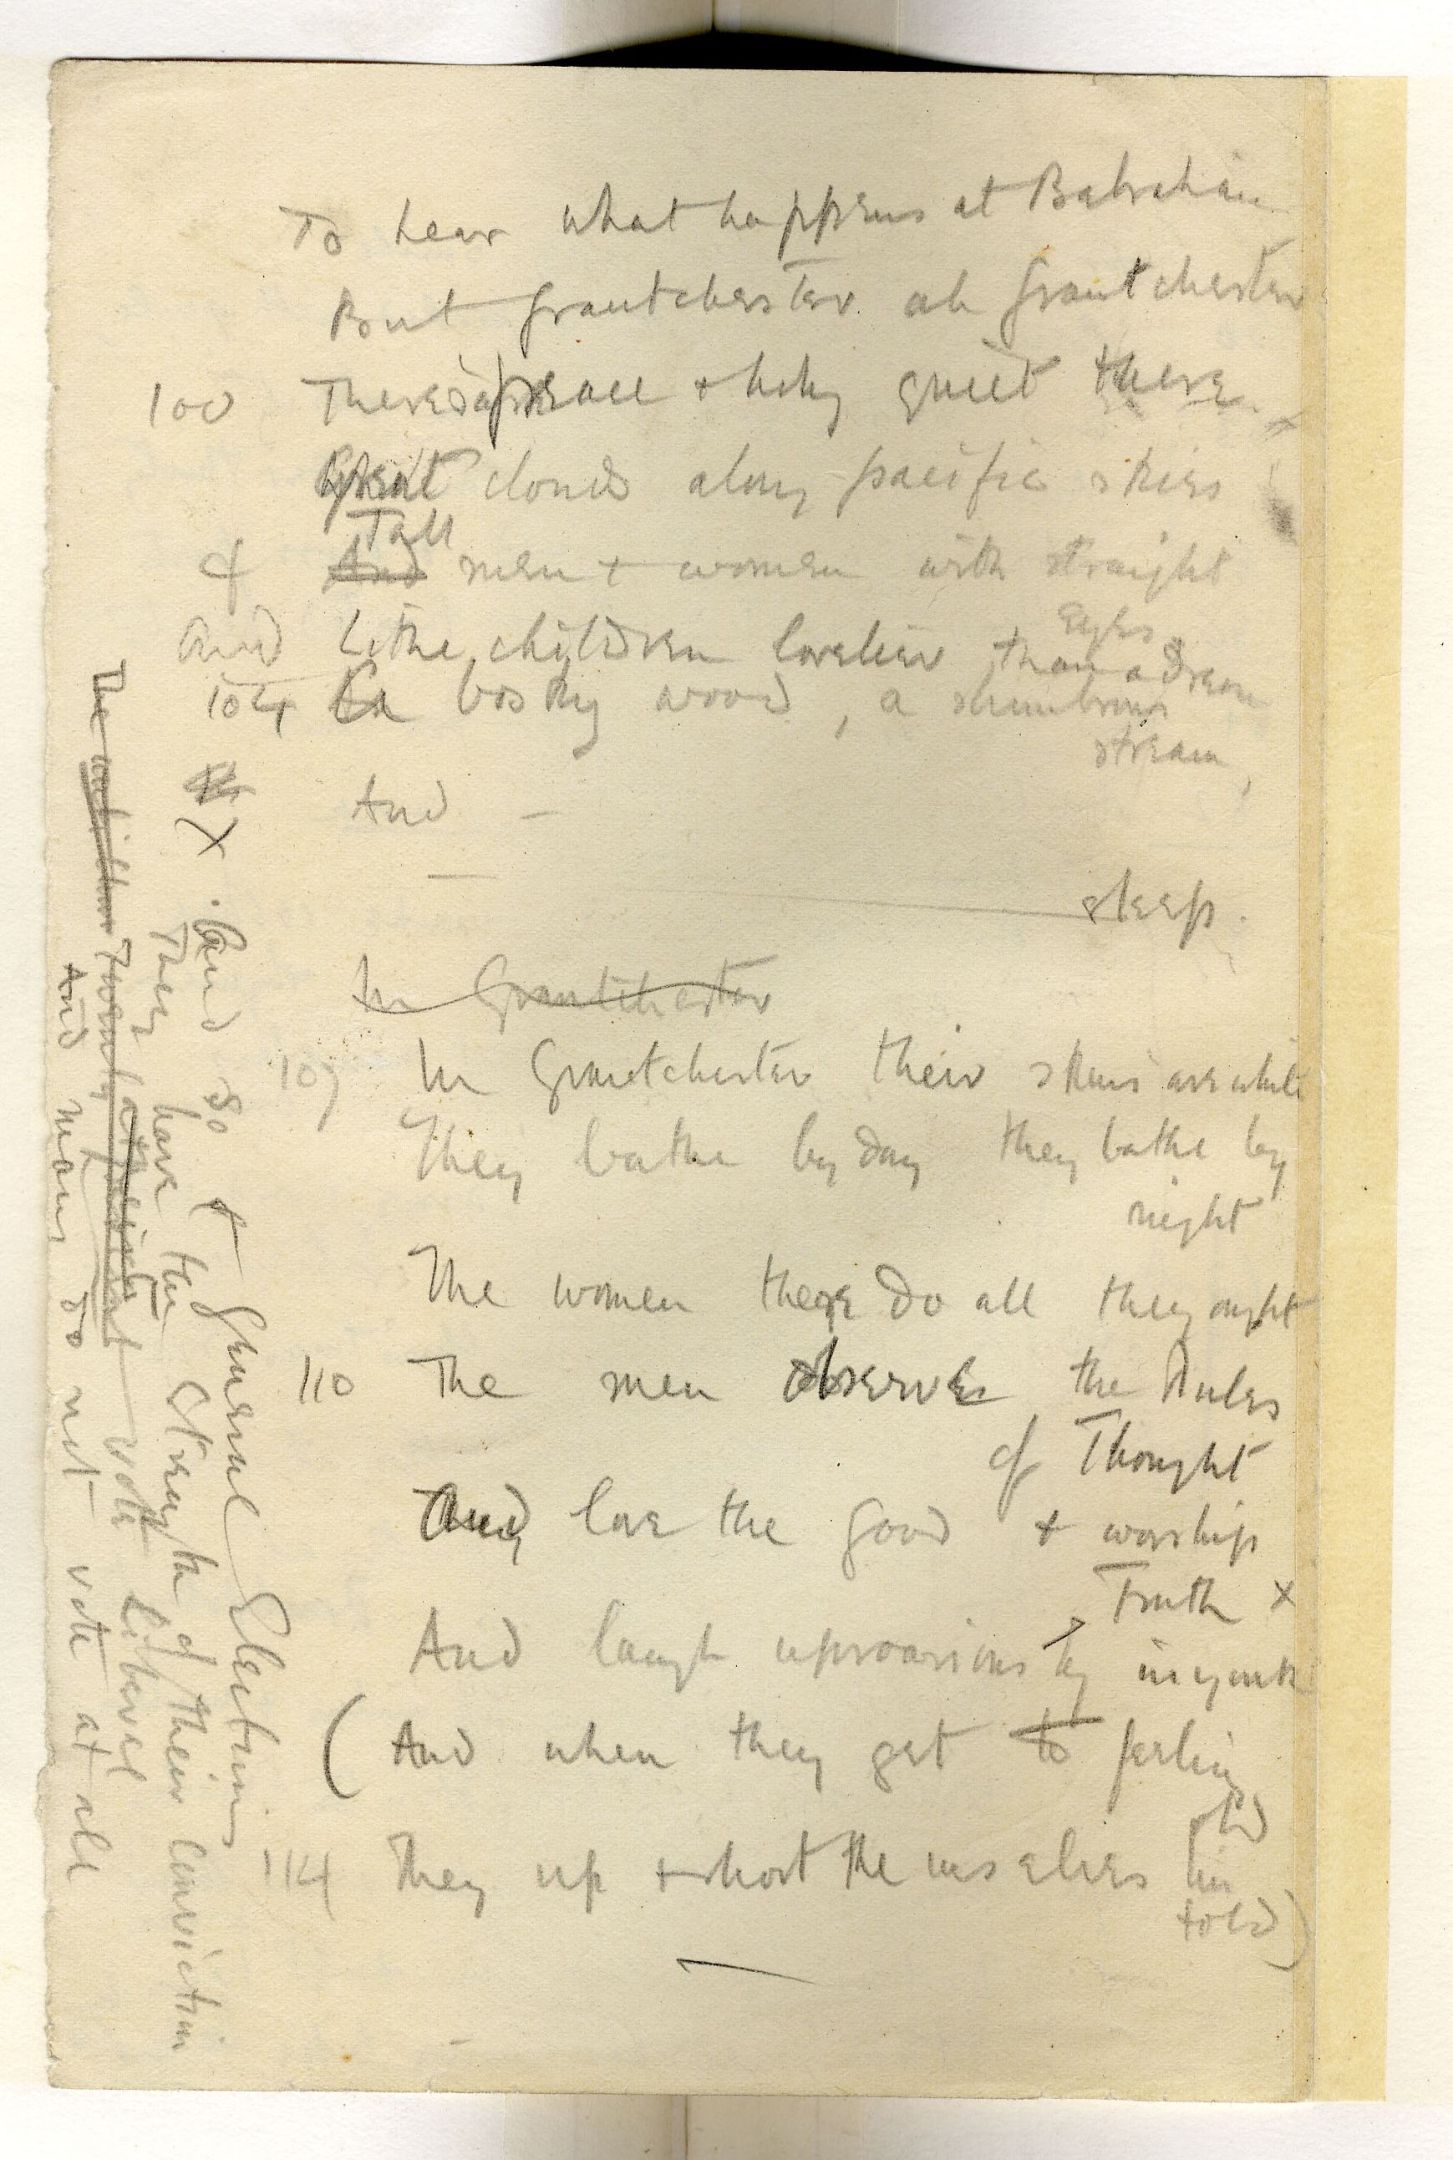 To hear what happens at Babraham
But Grantchester ah Grantchester
100 There's peace + holy quiet there
Great clouds along pacific skies
Tall
& And men + women with straight
eyes
and Lithe children lovelier than a dream
104 A bosky wood, a slumbrous
stream,
And –
sleep.
In Grantchester
107 In Grantchester their skins are white
They bathe by day they bathe by
night
The women there do all they ought
110 The men observe the Rules
of Thought
They love the Good + worship
Truth x
And laugh uproariously in youth
(And when they get to feeling
old
114 They up + shoot themselves I'm
told)
X And so at General Elections
They have the strength of their Conviction
The vote Liberal
And many do not vote at all